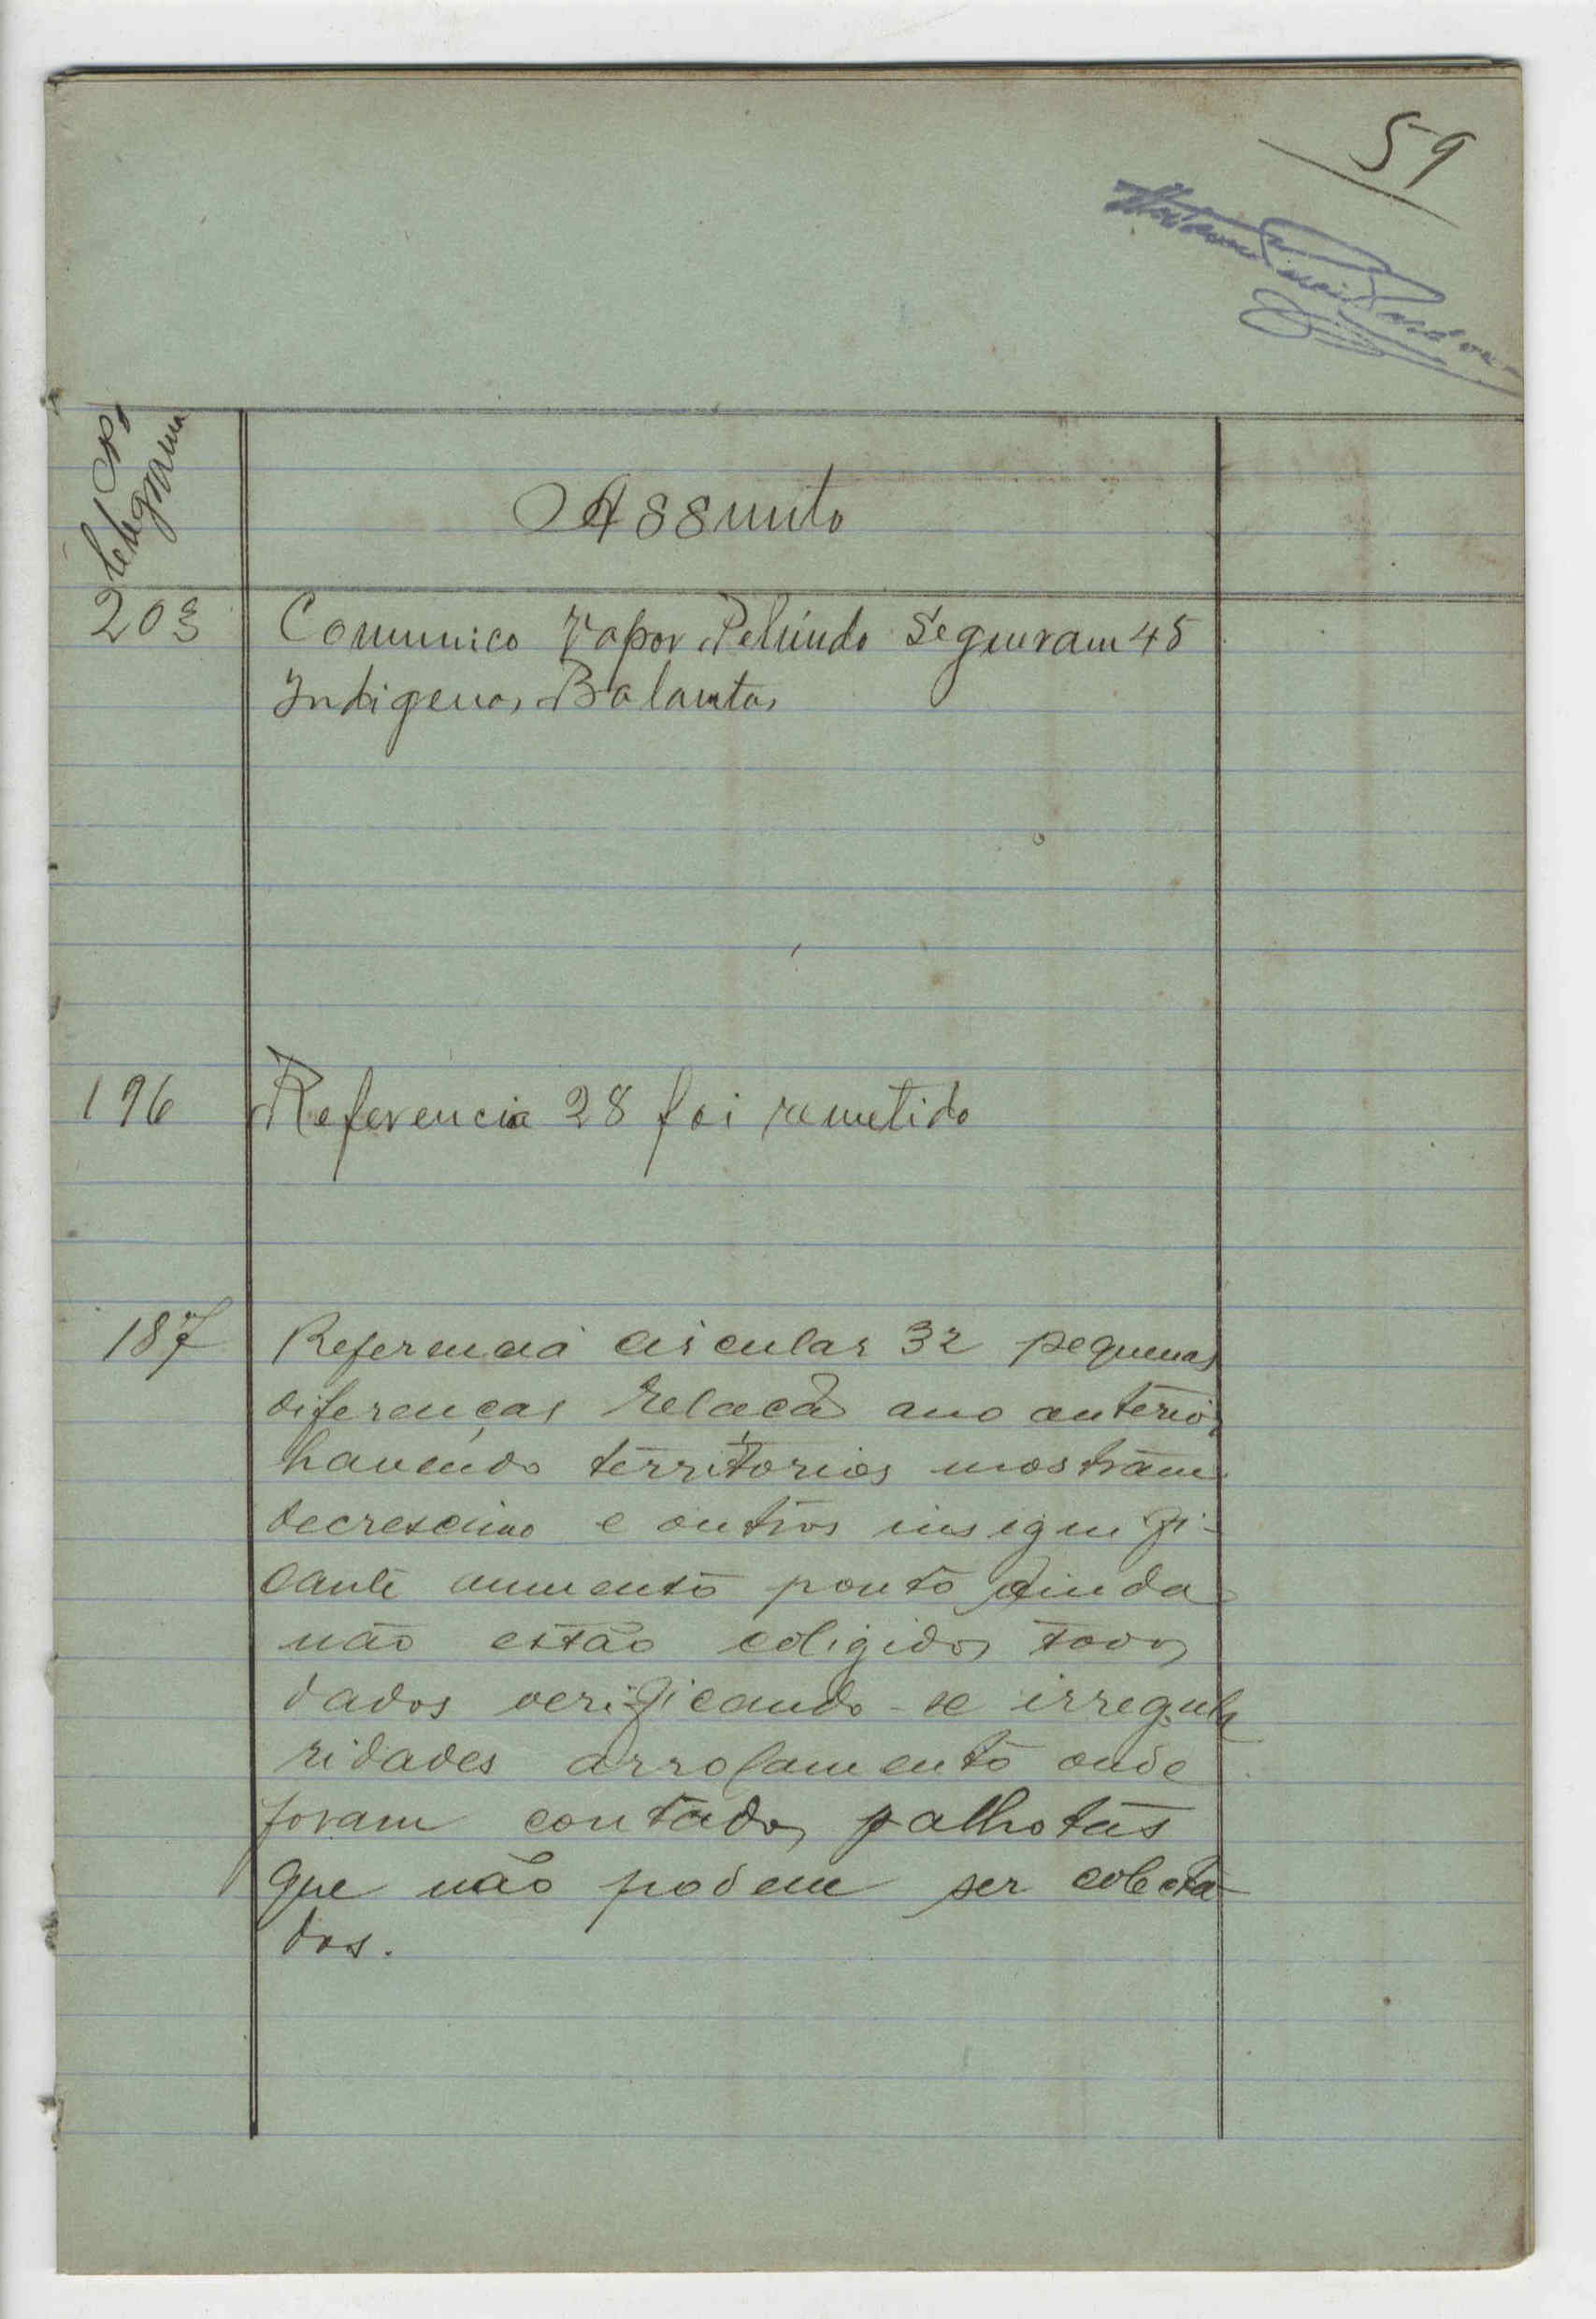 59
Nº
telegrama
Assunto
203 Comunico Vapor Pelundo Seguiram 45
Indigenas Balantas
196 Referencia 28 foi remetido
187 Referencia circular 32 pequenas
diferenças relacã ano anterior
havendo territorios mostram
decrescimo e outros insignifi-
cante aumento ponto ainda
não estão coligidos todos
dados verificando-se irregula
ridades arrolamento onde
foram contados palhotas
que não podem ser colecta-
dos.